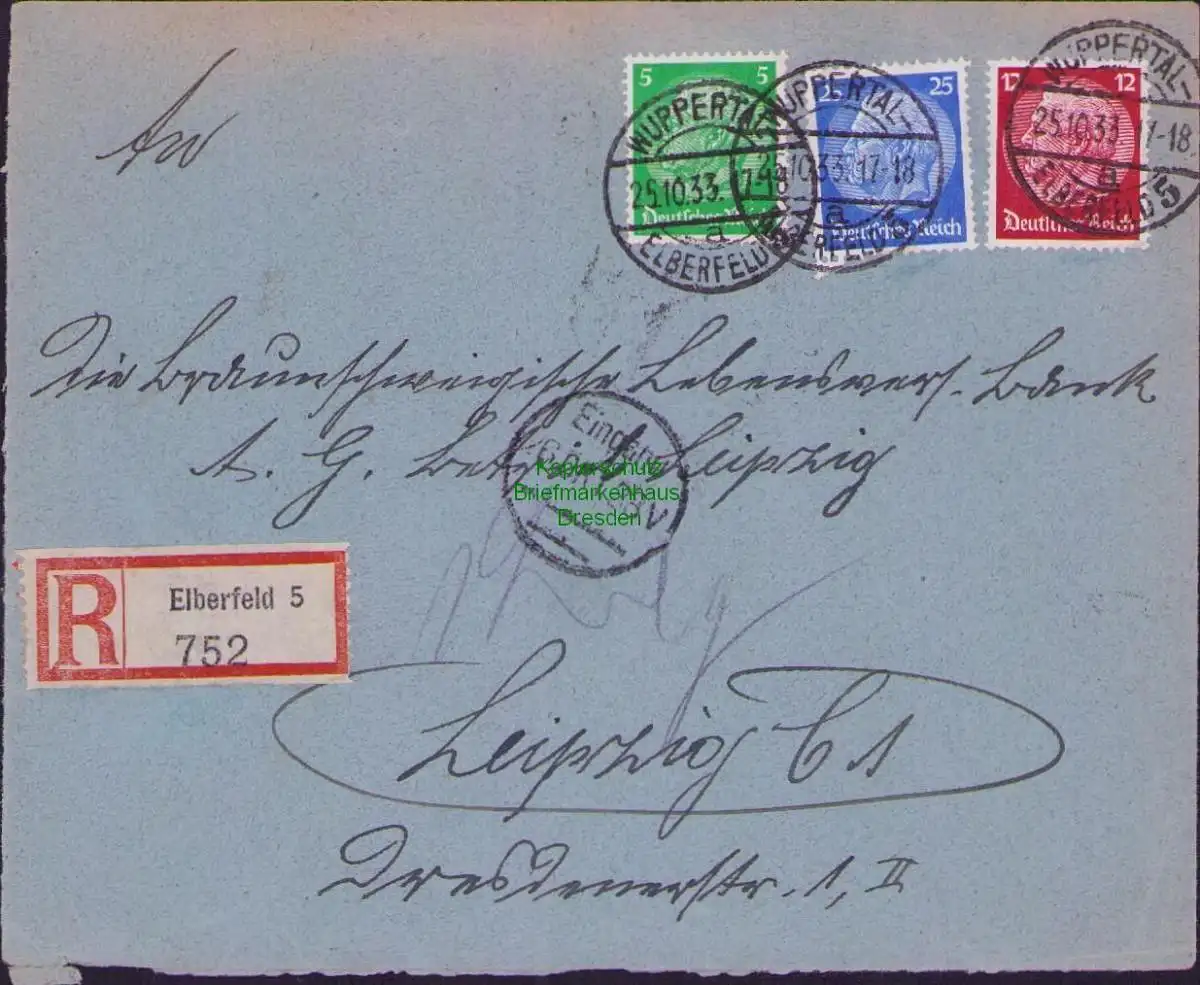 5 5
Deutsches Reich
25 25
Deutsches Reich
12 12
Deutsches Reich
WUPPERTAL-
25.10.33. 17-18
a
ELBERFELD 5
WUPPERTAL-
25.10.33. 17-18
a
ELBERFELD 5
WUPPERTAL-
25.10.33. 17-18
a
ELBERFELD 5
An
Die Braunschweigische Lebensvers. Bank
A. G. Leipzig
Eingang
V
Kopierschutz
Briefmarkenhaus
Dresden
R Elberfeld 5
752
Leipzig C 1
Dresdenerstr. 1, II